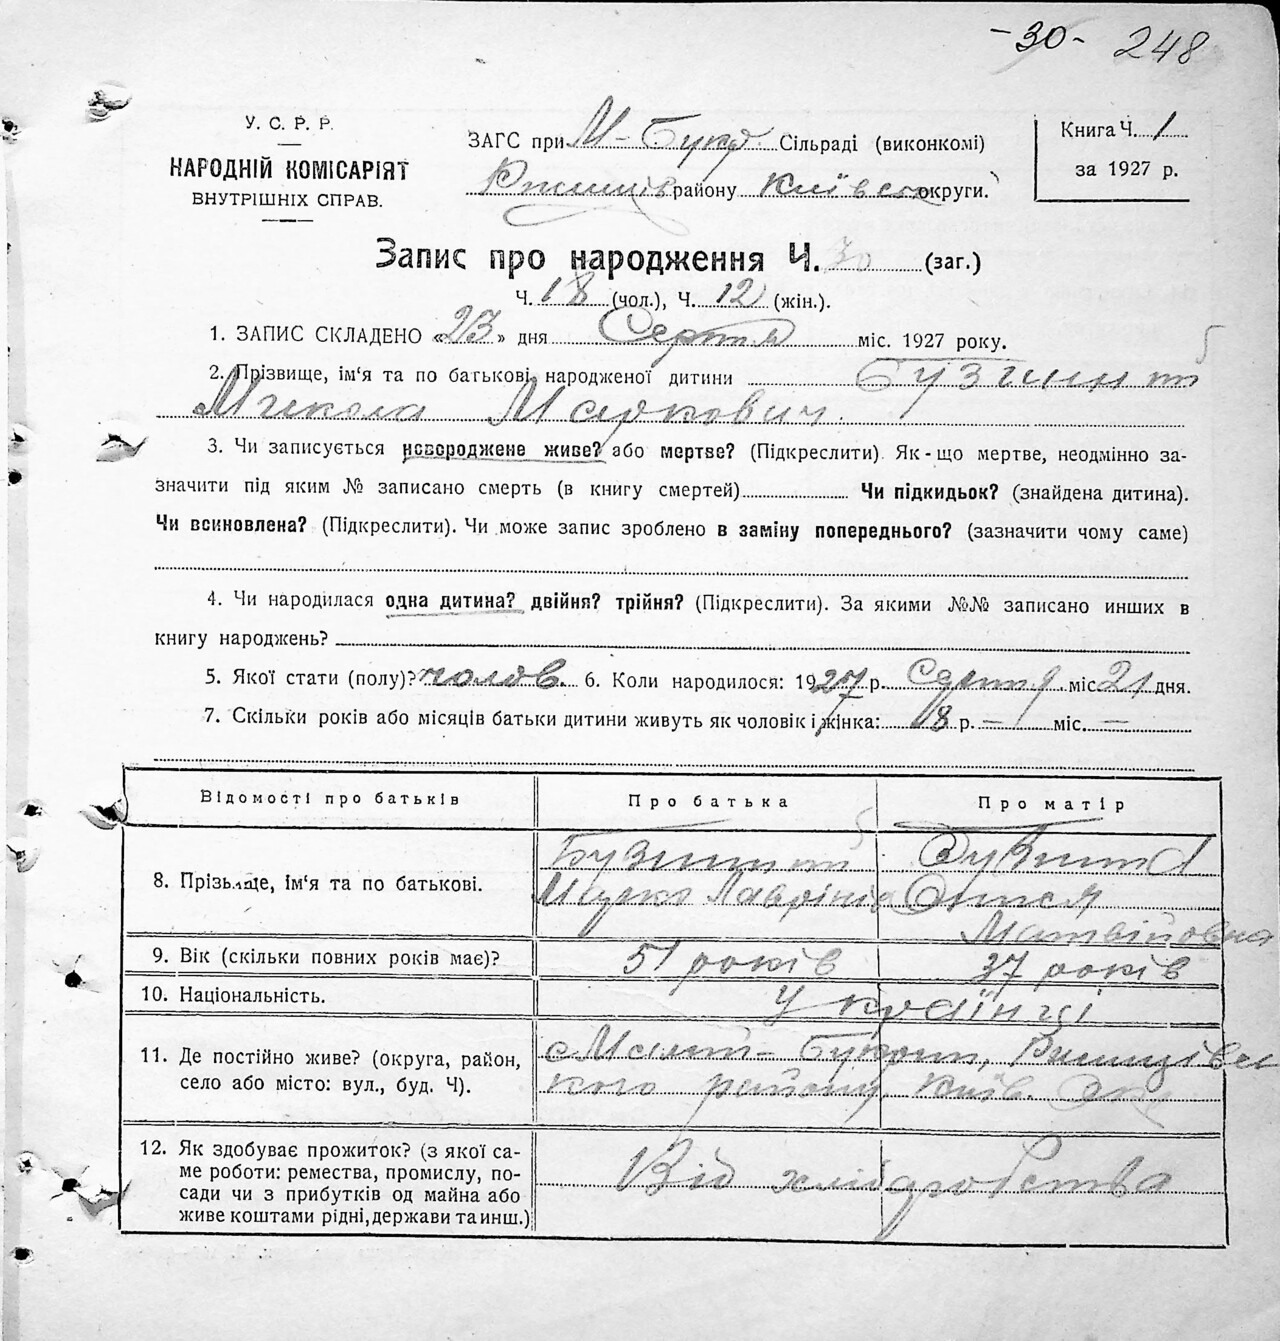 -30- 248
У. С. Р. Р.
НАРОДНІЙ КОМІСАРІЯТ
ВНУТРІШНІХ СПРАВ.
ЗАГС при М-Букр. Сільраді (виконкомі)
Ржищів району Київськ округи.
Книга Ч. 1
за 1927 р.
Запис про народження Ч. 30 (заг.)
Ч. 18 (чол.), Ч. 12 (жін.).
1. ЗАПИС СКЛАДЕНО «23» дня Серпня міс. 1927 року.
2. Прізвище, ім'я та по батькові народженої дитини
Микола Маркович.
3. Чи записується новороджене живе? або мертве? (Підкреслити). Як-що мертве, неодмінно за-
значити під яким № записано смерть (в книгу смертей) Чи підкидьок? (знайдена дитина).
Чи всиновлена? (Підкреслити). Чи може запис зроблено в заміну попереднього? (зазначити чому саме)
4. Чи народилася одна дитина? двійня? трійня? (Підкреслити). За якими №№ записано инших в
книгу народжень?
5. Якої стати (полу)? чолов. 6. Коли народилося: 1927 р. Серпня міс. 21 дня.
7. Скільки років або місяців батьки дитини живуть як чоловік і жінка: 18 р. — міс. —
Відомості про батьків Про батька Про матір
8. Прізвище, ім'я та по батькові.
Марко Лаврінів
Матвійовна
9. Вік (скільки повних років має)? 51 років 37 років
10. Національність. Українці
11. Де постійно живе? (округа, район,
село або місто: вул., буд. Ч).
с Малий-Букрин, Ржищівсь
кого району, Київ. Окр
12. Як здобуває прожиток? (з якої са-
ме роботи: ремества, промислу, по-
сади чи з прибутків од майна або
живе коштами рідні, держави та инш.)
Від хліборобства